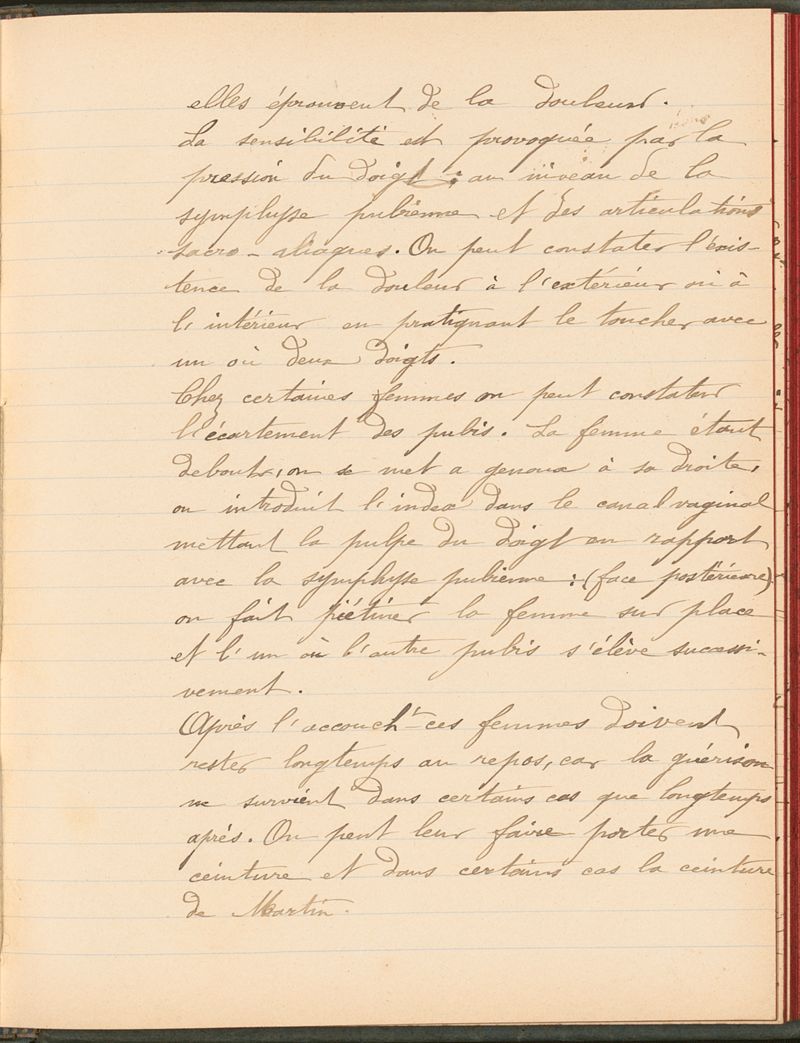 elles éprouvent de la douleur.
La sensibilité est provoquée par la
pression du doigt : au niveau de la
symphyse pubienne et des articulations
sacro-iliaques. On peut constater l'exis-
tence de la douleur à l'extérieur où à
l'intérieur en pratiquant le toucher avec
un où deux doigts.
Chez certaines femmes on peut constater
l'écartement des pubis. La femme étant
debout, on se met a genoux à sa droite,
on introduit l'index dans le canal vaginal
mettant la pulpe du doigt en rapport
avec la symphyse pubienne : (face postérieure)
on fait piétiner la femme sur place
et l'un où l'autre pubis s'élève successi-
vement.
Après l'accouch^t ces femmes doivent
rester longtemps au repos, car la guérison
ne survient dans certains cas que longtemps
après. On peut leur faire porter une
ceinture et dans certains cas la ceinture
de Martin.